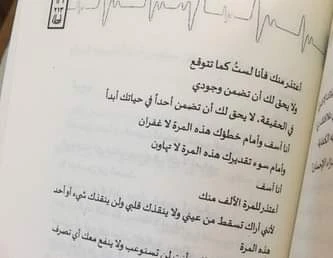 ٢١٣
أعتذر منك فأنا لستُ كما تتوقع
ولا يحق لك أن تضمن وجودي
في الحقيقة، لا يحق لك أن تضمن أحداً في حياتك أبداً
أنا أسف وأمام خطؤك هذه المرة لا غفران
وأمام سوء تقديرك هذه المرة لا تهاون
أنا أسف
أعتذر للمرة الألف منك
لأنني أراك تسقط من عيني ولا ينقذك قلبي ولن ينقذك شيء أو أحد
هذه المرة
لن تستوعب ولا ينفع معك أي تصرف